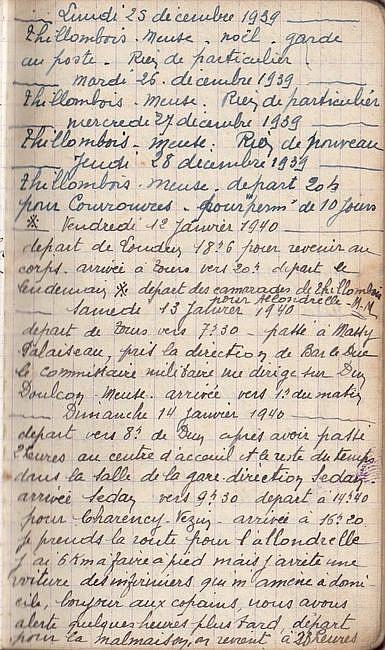 Lundi 25 décembre 1939
Thillombois. Meuse. noël. garde
au poste. Rien de particulier.
mardi 26. décembre 1939
Thillombois. Meuse. Rien de particulier
mercredi 27 décembre 1939
Thillombois. Meuse. Rien de nouveau
Jeudi 28 décembre 1939
Thillombois. Meuse. depart 20h
pour Courouvres. pour "perm" de 10 Jours
※ Vendredi 12 Janvier 1940
depart de Loudun 18h6 pour revenir au
corps. arrivée à tours vers 20h depart le
lendemain ※ départ des camarades de Thillombois
pour Allondrelle - M.M.
Samedi 13 Janvier 1940
depart de Tours vers 7h30 - passé à Massy
Palaiseau, pris la direction de Bar le Duc
le commissaire militaire me dirige sur Dun
Doulcon Meuse. arrivée vers 1h du matin
Dimanche 14 Janvier 1940
depart vers 8h de Dun après avoir passé
2 heures au centre d'acceuil et le reste du temps
dans la salle de la gare direction Sedan
arrivée Sedan vers 9h30 depart à 14h40
pour Charency-Vezin - arrivée à 16h20
Je prends la route pour l'allondrelle
J'ai 6 Km a faire à pied mais j'arrête une
voiture des infirmiers qui m'amène à domi-
cile, bonjour aux copains, nous avons
alerte quelques heures plus tard, départ
pour la malmaison, on revient à 23 heures